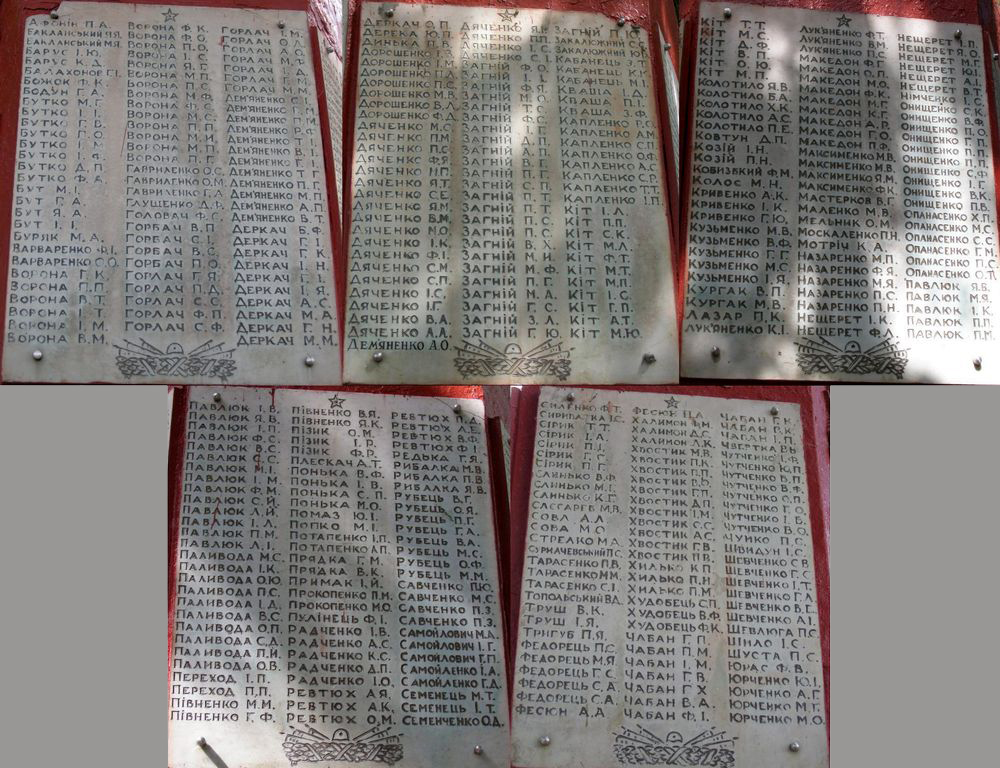 АФОНІН П.А.
БАКЛАНСЬКИЙ Я.Я.
БАКЛАНСЬКИЙ М.Я.
БАРУС І.Ю.
БАРУС К.Д.
БАЛАХОНОВ Г.І.
БОЖОК Ф.К.
БОДУН Г.А.
БУТКО М.Г.
БУТКО І.І.
БУТКО Г.В.
БУТКО Г.О.
БУТКО М.І.
БУТКО І.Ф.
БУТКО Д.Т.
БУТКО Ф.А.
БУТ М.І.
БУТ Г.А.
БУТ Я.А.
БУТ І.І.
БУРЯК М.А.
ВАРВАРЕНКО Я.І.
ВАРВАРЕНКО С.О.
ВОРОНА Г.К.
ВОРОНА П.П.
ВОРОНА В.Т.
ВОРОНА І.Т.
ВОРОНА І.М.
ВОРОНА В.М.
ВОРОНА Ф.К.
ВОРОНА М.С.
ВОРОНА П.О.
ВОРОНА І.С.
ВОРОНА Я.Г.
ВОРОНА М.П.
ВОРОНА М.Ф.
ВОРОНА М.С.
ВОРОНА П.П.
ВОРОНА М.И.
ВОРОНА М.П.
ВОРОНА П.Г.
ГАВРИЛЕНКО О.С.
ГАВРИЛЕНКО О.М.
ГАВРИЛЕНКО Г.Д.
ГЛУЩЕНКО Д.Ф.
ГОЛОВАЧ Ф.С.
ГОРБАЧ В.П.
ГОРБАЧ С.І.
ГОРБАЧ В.С.
ГОРБАЧ П.О.
ГОРЛАЧ Г.Я.
ГОРЛАЧ П.Д.
ГОРЛАЧ С.С.
ГОРЛАЧ Ф.П.
ГОРЛАЧ С.Ф.
ГОРЛАЧ І.М.
ГОРЛАЧ А.С.
ГОРЛАЧ О.Д.
ГОРЛАЧ М.Т.
ГОРЛАЧ І.Д.
ГОРЛАЧ М.М.
ДЕМ'ЯНЕНКО С.І.
ДЕМ'ЯНЕНКО Г.М.
ДЕМ'ЯНЕНКО Р.Ф.
ДЕМ'ЯНЕНКО В.І.
ДЕМ'ЯНЕНКО Г.І.
ДЕМ'ЯНЕНКО Т.Г.
ДЕМ'ЯНЕНКО П.Г.
ДЕМ'ЯНЕНКО М.Г.
ДЕМ'ЯНЕНКО А.П.
ДЕМ'ЯНЕНКО В.Т.
ДЕРКАЧ Б.Ф.
ДЕРКАЧ Г.І.
ДЕРКАЧ Г.К.
ДЕРКАЧ І.Н.
ДЕРКАЧ Г.Г.
ДЕРКАЧ І.Я.
ДЕРКАЧ А.С.
ДЕРКАЧ М.С.
ДЕРКАЧ Г.Н.
ДЕРКАЧ М.М.
ДЕРКАЧ О.П.
ДЕРЕКА Ю.П.
ДИНЬКА П.В.
ДОРОШЕНКО І.Л.
ДОРОШЕНКО І.М.
ДОРОШЕНКО П.Д.
ДОРОШЕНКО П.С.
ДОРОШЕНКО М.В.
ДОРОШЕНКО В.Д.
ДОРОШЕНКО Ф.Д.
ДЯЧЕНКО М.С.
ДЯЧЕНКО П.М.
ДЯЧЕНКО П.С.
ДЯЧЕНКО Ф.Я.
ДЯЧЕНКО И.П.
ДЯЧЕНКО Я.Т.
ДЯЧЕНКО С.Е.
ДЯЧЕНКО Я.Н.
ДЯЧЕНКО Б.М.
ДЯЧЕНКО М.О.
ДЯЧЕНКО І.К.
ДЯЧЕНКО Ф.І.
ДЯЧЕНКО С.М.
ДЯЧЕНКО С.П.
ДЯЧЕНКО І.С.
ДЯЧЕНКО І.Г.
ДЯЧЕНКО В.А.
ДЯЧЕНКО А.А.
ДЕМ'ЯНЕНКО А.О.
ДЯЧЕНКО Я.Н.
ДЯЧЕНКО С.Г.
ДЯЧЕНКО І.С.
ЗАГНІЙ С.Г.
ЗАГНІЙ Д.Г.
ЗАГНІЙ І.І.
ЗАГНІЙ Ф.Я.
ЗАГНІЙ М.О.
ЗАГНІЙ Ф.С.
ЗАГНІЙ І.Г.
ЗАГНІЙ Д.Г.
ЗАГНІЙ І.П.
ЗАГНІЙ Г.Г.
ЗАГНІЙ П.Г.
ЗАГНІЙ С.П.
ЗАГНІЙ П.Г.
ЗАГНІЙ С.Т.
ЗАГНІЙ В.П.
ЗАГНІЙ П.С.
ЗАГНІЙ В.Х.
ЗАГНІЙ М.И.
ЗАГНІЙ М.Ф.
ЗАГНІЙ П.Г.
ЗАГНІЙ М.А.
ЗАГНІЙ Г.С.
ЗАГНІЙ З.Л.
ЗАГНІЙ Г.Ю.
ЗАГНІЙ П.Ю.
ЗАКАЛЮЖНИЙ С.С.
ЗАКАЛЮЖНИЙ Ю.К.
КАБАНЕЦЬ З.Т.
КАБАНЕЦЬ К.М.
КАБАНЕЦЬ М.П.
КВАША М.І.
КВАША І.Д.
КВАША П.І.
КВАША З.Ф.
КАПЛЕНКО Г.С.
КАПЛЕНКО А.М.
КАПЛЕНКО С.П.
КАПЛЕНКО О.С.
КАПЛЕНКО А.С.
КАПЛЕНКО С.Р.
КАПЛЕНКО Т.Т.
КАПЛЕНКО І.П.
КІТ І.Л.
КІТ П.П.
КІТ О.К.
КІТ М.Л.
КІТ Ф.Т.
КІТ М.Т.
КІТ П.П.
КІТ І.С.
КІТ П.Г.
КІТ А.Т.
КІТ М.Ю.
КІТ Т.Т.
КІТ М.С.
КІТ Д.Ф.
КІТ В.П.
КІТ О.Ю.
КІТ М.П.
КОЛОТИЛО Я.В.
КОЛОТИЛО Б.А.
КОЛОТИЛО Х.К.
КОЛОТИЛО А.С.
КОЛОТИЛО П.Е.
КОВТУН Д.П.
КОЗІЙ І.Н.
КОЗІЙ П.Н.
КОБИЗЬКИЙ Ф.М.
КОЛОС М.Н.
КРИВЕНКО А.К.
КРИВЕНКО І.К.
КРИВЕНКО Г.Ю.
КУЗЬМЕНКО М.В.
КУЗЬМЕНКО В.Ф.
КУЗЬМЕНКО Г.С.
КУЗЬМЕНКО М.С.
КУЗЬМЕНКО І.Я.
КУРГАК В.П.
КУРГАК М.В.
ЛАЗАР П.К.
ЛУК'ЯНЕНКО К.І.
ЛУК'ЯНЕНКО Ф.Т.
ЛУК'ЯНЕНКО В.М.
МАКЕДОН Ф.Г.
МАКЕДОН П.Г.
МАКЕДОН О.П.
МАКЕДОН Ф.О.
МАКЕДОН М.С.
МАКЕДОН Г.Г.
МАКЕДОН А.Г.
МАКЕДОН В.І.
МАКЕДОН Г.О.
МАКЕДОН П.Д.
МАКСИМЕНКО М.В.
МАКСИМЕНКО М.В.
МАКСИМЕНКО Я.М.
МАКСИМЕНКО Ф.К.
МАСТЕРКОВ В.Г.
МАЛЕНКО М.В.
МЕЛЬНИК О.М.
МОСКАЛЕНКО П.Н.
МОТРІЧ К.А.
НАЗАРЕНКО М.П.
НАЗАРЕНКО Ф.Я.
НАЗАРЕНКО М.Я.
НАЗАРЕНКО П.С.
НАЗАРЕНКО П.Н.
НЕЩЕРЕТ І.К.
НЕЩЕРЕТ Ф.Д.
НЕЩЕРЕТ І.П.
НЕЩЕРЕТ Я.О.
НЕЩЕРЕТ М.Г.
НЕЩЕРЕТ І.Ю.
НЕЩЕРЕТ А.І.
НІМЧЕНКО В.Т.
ОНИЩЕНКО І.С.
ОНИЩЕНКО С.К.
ОНИЩЕНКО П.О.
ОНИЩЕНКО П.Г.
ОНИЩЕНКО О.Г.
ОНИЩЕНКО П.П.
ОНИЩЕНКО С.Ф.
ОНИЩЕНКО Г.І.
ОНИЩЕНКО В.К.
ОНИЩЕНКО П.В.
ОПАНАСЕНКО Х.П.
ОПАНАСЕНКО М.С.
ОПАНАСЕНКО С.С.
ОПАНАСЕНКО Г.Н.
ОПАНАСЕНКО П.С.
ОПАНАСЕНКО О.Т.
ПАВЛЮК Я.В.
ПАВЛЮК М.Я.
ПАВЛЮК І.К.
ПАВЛЮК П.П.
ПАВЛЮК П.М.
ПАВЛЮК І.В.
ПАВЛЮК Я.В.
ПАВЛЮК І.П.
ПАВЛЮК Ф.С.
ПАВЛЮК В.С.
ПАВЛЮК С.С.
ПАВЛЮК М.І.
ПАВЛЮК І.М.
ПАВЛЮК Ф.М.
ПАВЛЮК С.Й.
ПАВЛЮК Л.Й.
ПАВЛЮК І.Л.
ПАВЛЮК П.М.
ПАВЛЮК Л.І.
ПАЛИВОДА М.С.
ПАЛИВОДА І.К.
ПАЛИВОДА О.Ю.
ПАЛИВОДА П.С.
ПАЛИВОДА І.Д.
ПАЛИВОДА В.С.
ПАЛИВОДА О.П.
ПАЛИВОДА С.Д.
ПАЛИВОДА П.Й.
ПАЛИВОДА О.В.
ПЕРЕХОД І.П.
ПЕРЕХОД П.П.
ПІВНЕНКО М.М.
ПІВНЕНКО Г.Ф.
ПІВНЕНКО В.Я.
ПІВНЕНКО Я.К.
ПІЗИК О.М.
ПІЗИК І.Р.
ПІЗИК Ф.Р.
ПЛЕСКАЧ А.Т.
ПОНЬКА В.Ф.
ПОНЬКА І.В.
ПОНЬКА С.П.
ПОНЬКА М.О.
ПОМАЗ Ю.І.
ПОПКО М.І.
ПОТАПЕНКО І.П.
ПОТАПЕНКО І.П.
ПРЯДКА Г.М.
ПРЯДКА В.К.
ПРИМАК І.Й.
ПРОКОПЕНКО П.М.
ПРОКОПЕНКО М.О.
ПУЛІНЕЦЬ Ф.І.
РАДЧЕНКО І.В.
РАДЧЕНКО А.С.
РАДЧЕНКО К.С.
РАДЧЕНКО Д.П.
РАДЧЕНКО І.О.
РЕВТЮХ А.Я.
РЕВТЮХ А.К.
РЕВТЮХ О.М.
РЕВТЮХ П.Д.
РЕВТЮХ Д.Е.
РЕВТЮХ В.Ф.
РЕВТЮХ Ф.І.
РЕДЬКА Г.Я.
РИБАЛКА М.В.
РИБАЛКА П.В.
РИБАЛКА Я.В.
РУБЕЦЬ В.Г.
РУБЕЦЬ О.Я.
РУБЕЦЬ П.Г.
РУБЕЦЬ Г.А.
РУБЕЦЬ В.А.
РУБЕЦЬ М.С.
РУБЕЦЬ О.Ф.
РУБЕЦЬ М.М.
САВЧЕНКО П.Ю.
САВЧЕНКО М.С.
САВЧЕНКО П.З.
САВЧЕНКО П.З.
САМОЙЛОВИЧ М.Л.
САМОЙЛОВИЧ І.Г.
САМОЙЛОВИЧ Г.П.
САМОЙЛЕНКО І.А.
САМОЙЛЕНКО Г.Д.
СЕМЕНЕЦЬ М.Т.
СЕМЕНЕЦЬ І.Т.
СЕМЕНЧЕНКО О.Д.
СИЛЕНКО Ф.Т.
СИРИВАТКА І.С.
СІРИК Т.Т.
СІРИК І.А.
СІРИК П.І.
СІРИК П.Г.
СЛИНЬКО В.Ф.
СЛИНЬКО К.Г.
СЛЕСАРЕВ М.В.
СОВА А.Л.
СОВА М.О.
СТРЕЛКО М.Д.
СУРМАЧЕВСЬКИЙ П.С.
ТАРАСЕНКО П.В.
ТАРАСЕНКО М.М.
ТАРАСЕНКО С.І.
ТОПОЛЬСЬКИЙ В.Д.
ТРУШ В.К.
ТРУШ І.Я.
ТРИГУБ П.Я.
ФЕДОРЕЦЬ П.С.
ФЕДОРЕЦЬ М.Я.
ФЕДОРЕЦЬ Г.С.
ФЕДОРЕЦЬ С.А.
ФЕДОРЕЦЬ С.А.
ФЕСЮН А.Д.
ФЕСЮН П.А.
ХАЛИМОН В.М.
ХАЛИМОН Д.С.
ХАЛИМОН Л.К.
ХВОСТИК М.В.
ХВОСТИК П.К.
ХВОСТИК В.О.
ХВОСТИК Г.П.
ХВОСТИК Д.П.
ХВОСТИК М.І.
ХВОСТИК С.С.
ХВОСТИК А.С.
ХВОСТИК Г.В.
ХВОСТИК П.В.
ХИЛЬКО К.П.
ХИЛЬКО П.Н.
ХИЛЬКО П.М.
ХУДОБЕЦЬ С.П.
ХУДОБЕЦЬ В.Ф.
ХУДОБЕЦЬ Ф.К.
ЧАБАН Г.П.
ЧАБАН І.М.
ЧАБАН Г.В.
ЧАБАН Г.Х.
ЧАБАН В.А.
ЧАБАН Ф.І.
ЧАБАН Г.К.
ЧАБАН І.П.
ЧАБАН Г.П.
ЧВЕРТКА В.Ь.
ЧУТЧЕНКО І.Ф.
ЧУТЧЕНКО Ю.П.
ЧУТЧЕНКО В.Ф.
ЧУТЧЕНКО О.П.
ЧУТЧЕНКО О.Г.
ЧУТЧЕНКО І.Б.
ЧУТЧЕНКО В.О.
ЧУЙКО П.С.
ШВИДУН І.С.
ШЕВЧЕНКО С.В.
ШЕВЧЕНКО Г.С.
ШЕВЧЕНКО І.Т.
ШЕВЧЕНКО Г.Л.
ШЕВЧЕНКО В.Е.
ШЕВЧЕНКО А.І.
ШЕВЛЮГА П.С.
ШИЛО І.С.
ШУСТА П.С.
ЮРАС Ф.В.
ЮРЧЕНКО Ю.І.
ЮРЧЕНКО А.Г.
ЮРЧЕНКО М.О.